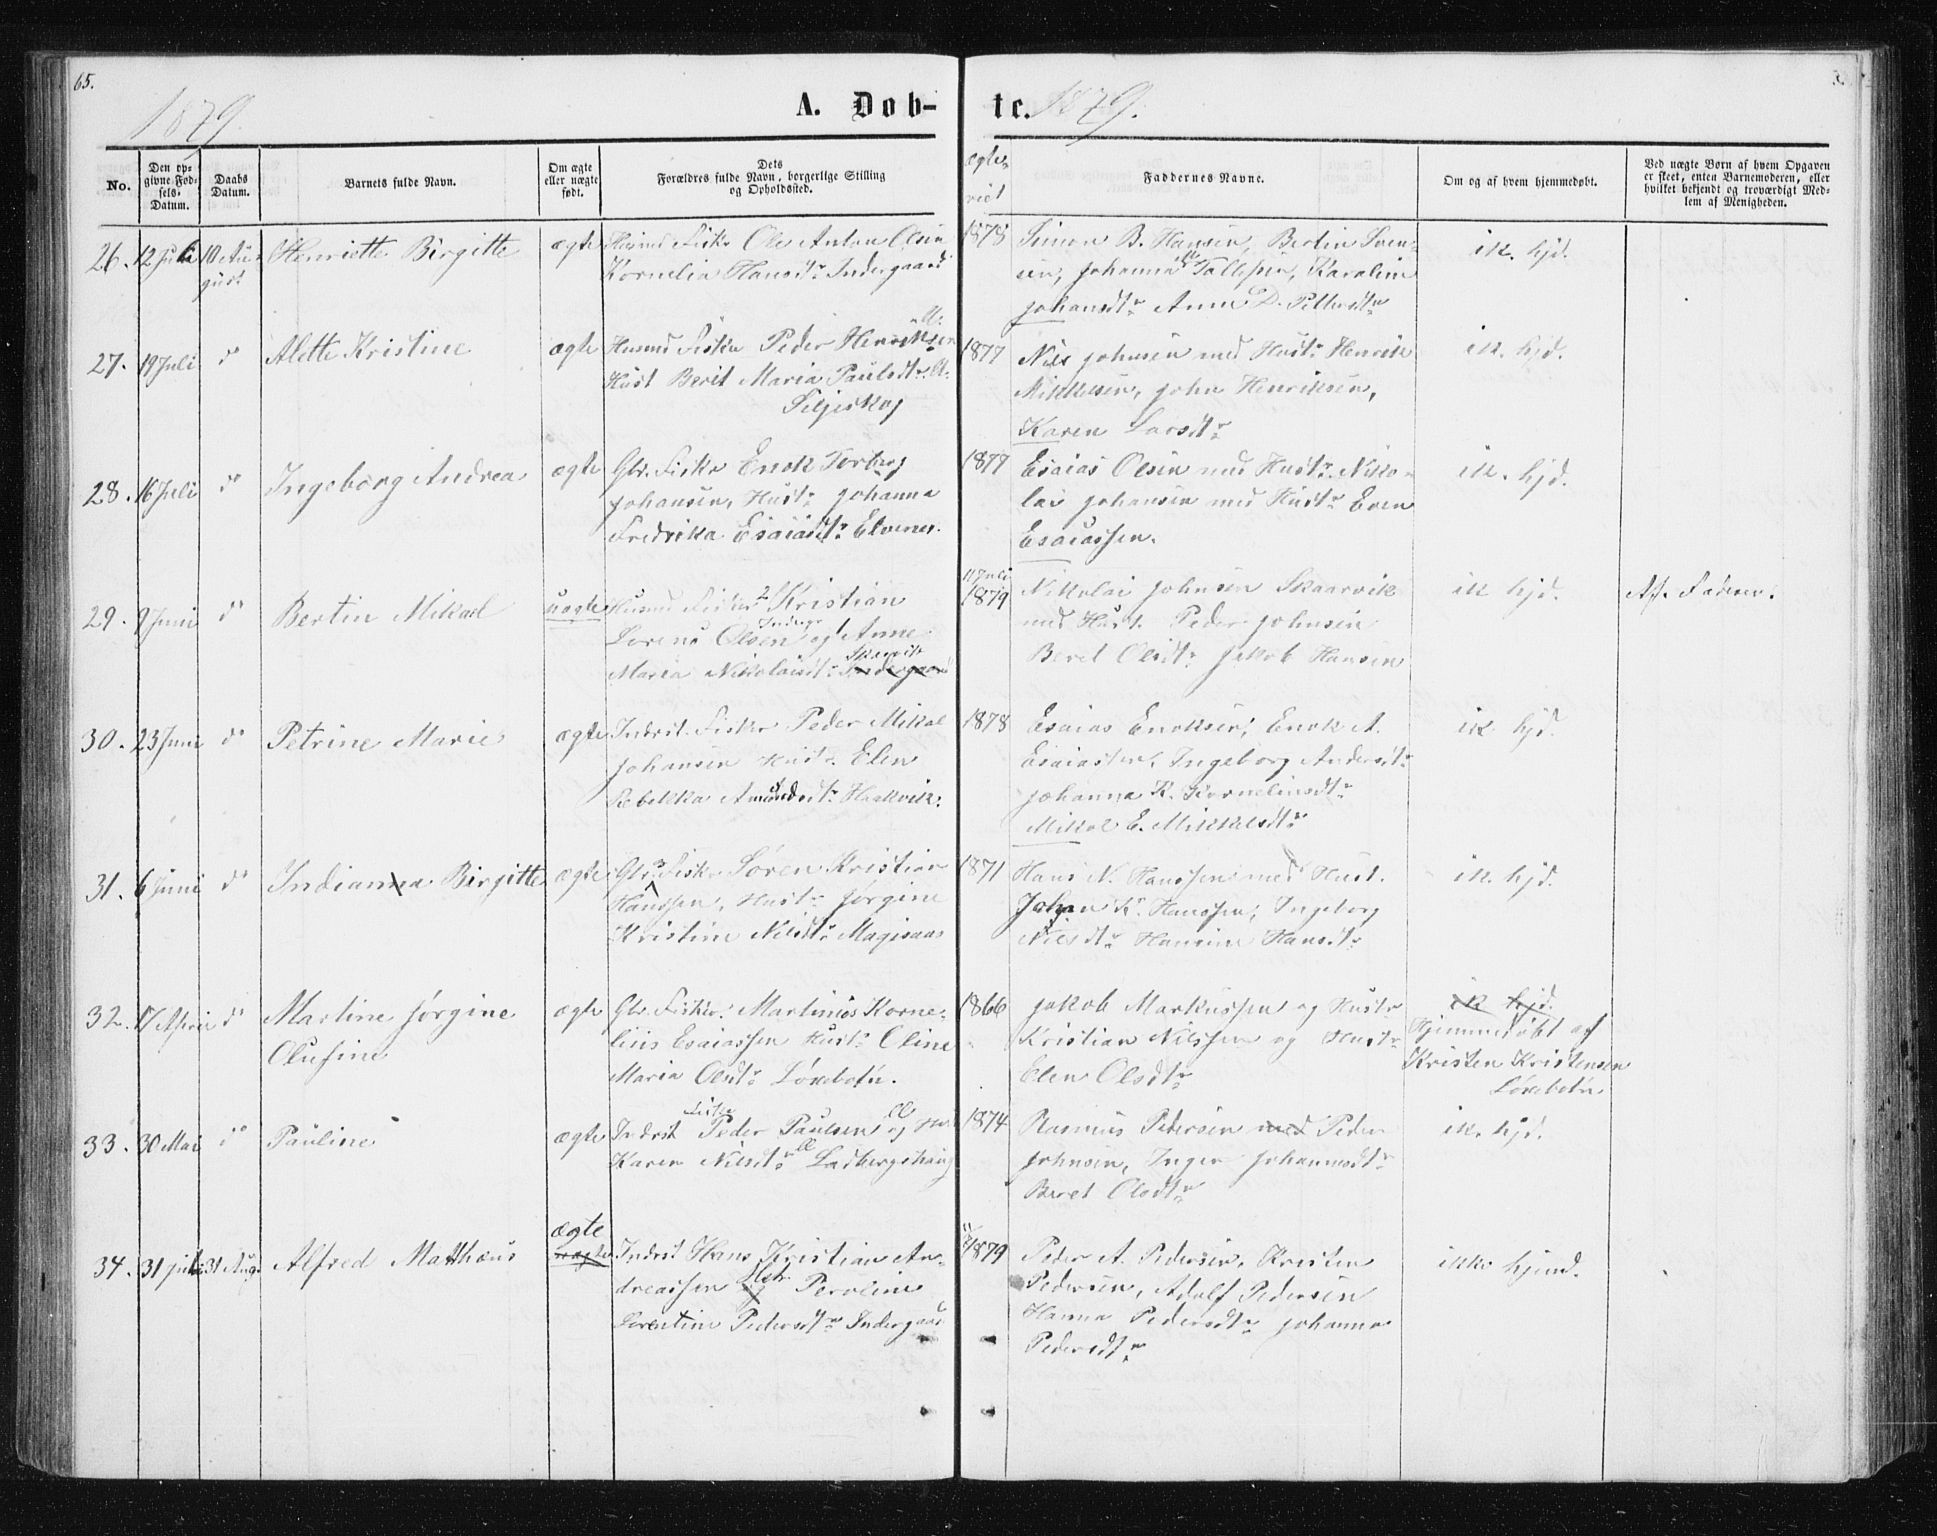 65.
1879.
A. Dob-
te. 1879.
No.
Den op-
givne Fød-
sels-
Datum.
Daabs
Datum.
Barnets fulde Navn.
Om ægte
eller uægte
født.
Dets
Forældres fulde Navn, borgerlige Stilling
og Opholdssted.
ægte-
viet
Faddernes Navne.
Om og af hvem hjemmedøbt.
Ved uægte Børn af hvem Opgaven
er skeet, enten Barnemoderen, eller
hvilket bekjendt og troværdigt Med-
lem af Menigheden.
26. 12 Juli 10 Au-
gust
Henriette Birgitte
ægte
Husmd Fisker Ole Anton Olsen
Kornelia Hansdtr Indergaard
1878
Simon B. Hansen, Bertin Sven-
sen, Johanna Tollefsen, Karoline
Johansdtr Anne D. Pettersdtr
ik. hjd.
27. 19 Juli do
Alette Kristine
ægte
Husmd Fisker Peder Henriksen
Hust Berit Maria Paulsdtr
Siljeskog
1877
Nils Johnsen med Hustr Henrik
Mikkelsen, John Henriksen,
Karen Larsdtr
ik. hjd.
28. 16 Juli do
Ingeborg Andrea
ægte
Gbr. Fisker Enok Torberg
Johansen, Hustr Johanna
Fredrika Esaiasdtr Elvenes.
1877
Esaias Olsen med Hustr Niko-
lai Johansen med Hustr Even
Esaiassen.
ik. hjd.
29. 9 Juni do
Bertin Mikael
uægte
Husmd Fisker 2 Kristian
Lorens Olsen Inderg og 1 Anne
Maria Nikolaisdtr Skarvik Indergaard
11 Juli
1879
Nikolai Johnsen Skaarvik
med Hust. Peder Johnsen
Beret Olsdtr Jakob Hansen
ik hjd.
Af. Faderen.
30. 23 Juni do
Petrine Marie
ægte
Indrst. Fisker Peder Mikal
Johansen Hustr Elen
Rebekka Amundsdtr Haakvik.
1878
Esaias Enoksen, Enok A.
Esaiassen, Ingeborg Andersdtr
Johanna K. Korneliusdtr
Mikal E. Mikkelsdtr
ik hjd.
31. 6 Juni do
Indianna Birgitte
ægte
Gbr. Fisker Søren Kristian
Hanssen, Hustr Jørgine
Kristine Nilsdtr Magisaas
1871
Hans N. Hanssen med Hust.
Johan K. Hanssen, Ingeborg
Nilsdtr Hansine Hansdtr
ik. hjd.
32. 17 April do
Martine Jørgine
Olufine
ægte
Gbr. Fisker Martinus Korne-
lius Esaiassen Hustr Oline
Maria Olsdtr Løxebotn.
1866
Jakob Markussen og Hustr
Kristian Nilssen og Hustr
Elen Olsdtr
ik hjd.
Hjemmedøbt af
Kristen Kristensen
Løxebotn
33. 30 Mai do
Pauline
ægte
Indrst Fisker Peder Paulsen og Hust
Karen Nilsdtr Ladbergshaug
1874
Rasmus Pedersen med Peder
Johnsen, Inger Johannesdtr
Beret Olsdtr
ik. hjd.
34. 31 Juli 31 Aug.
Alfred Mathæus
ægte
uægte
Indrst Hans Kristian An-
dreassen og Hstr Peroline
Lorentine Pedersdtr Indergaard
1879
Peder A. Pedersen, Kristen
Pedersen, Adolf Pedersen
Hanna Pedersdtr Johanna
Pedersdtr
ikke hjemd.